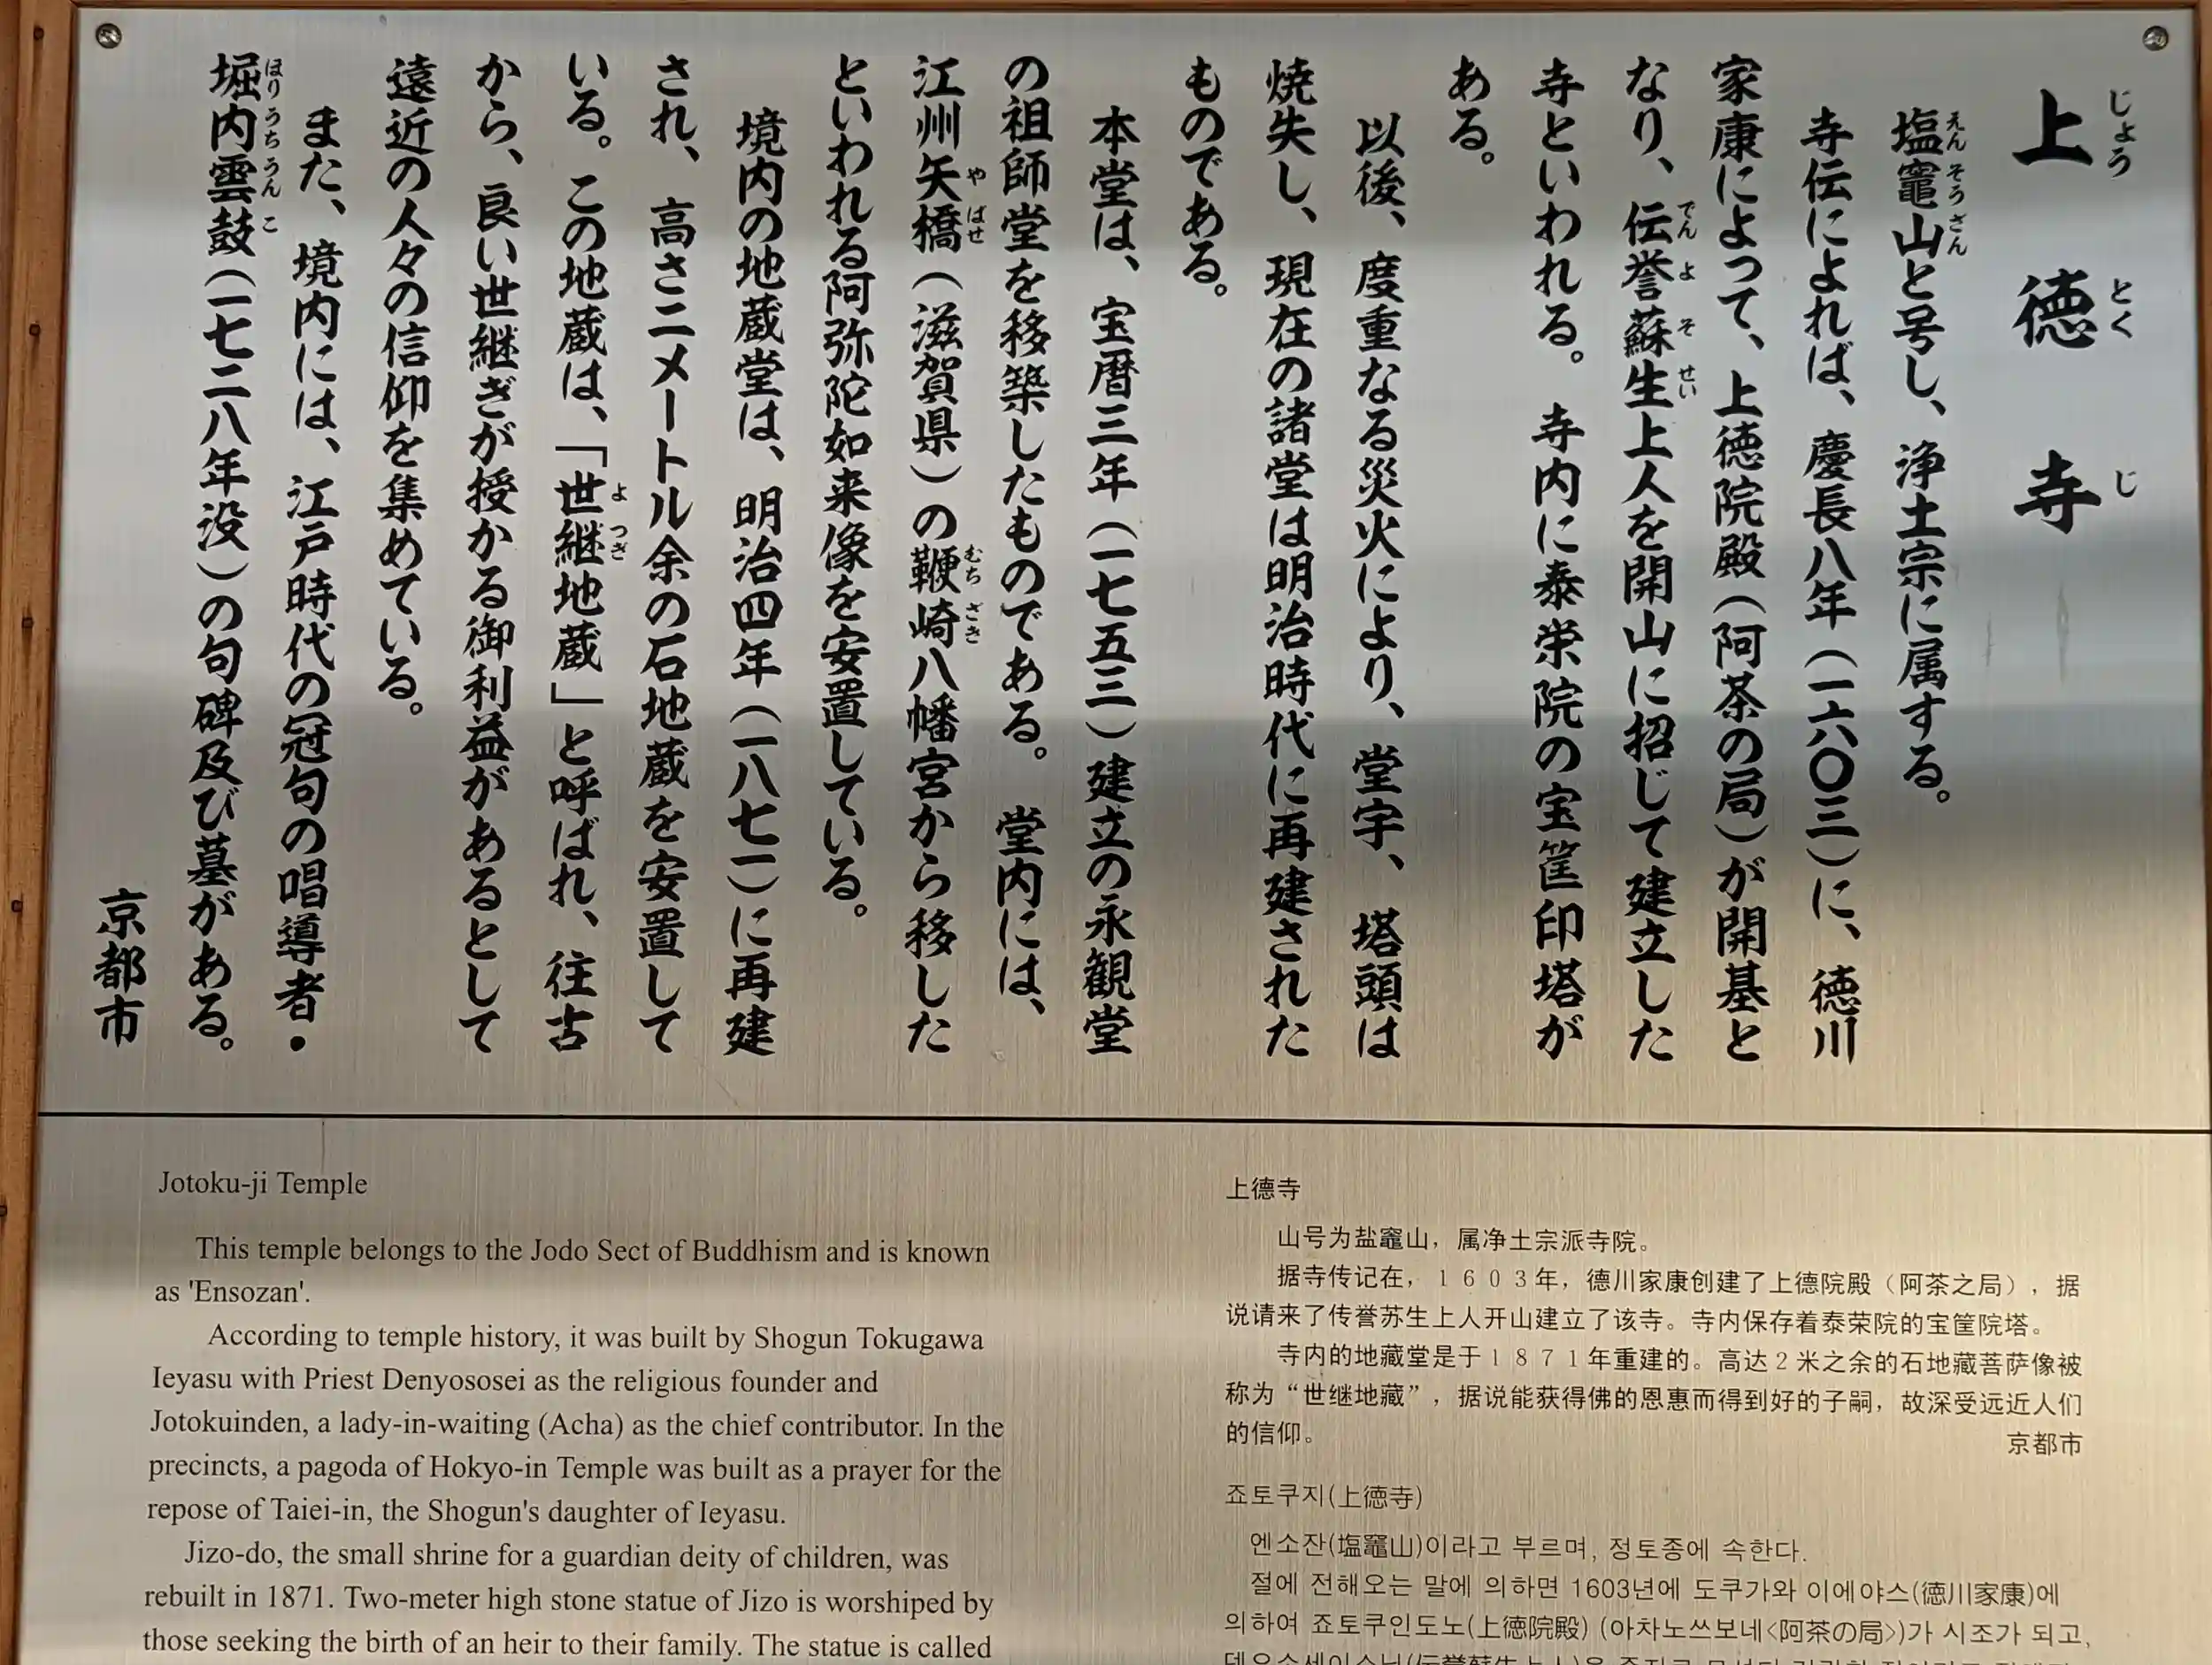 上徳寺
じょうとくじ
塩竈山と号し、浄土宗に属する。
えんそうざん
寺伝によれば、慶長八年(一六〇三)に、徳川
家康によって、上徳院殿(阿茶の局)が開基と
なり、伝誉蘇生上人を開山に招じて建立した
でんよそせい
寺といわれる。寺内に泰栄院の宝筐印塔が
ある。
以後、度重なる災火により、堂宇、塔頭は
焼失し、現在の諸堂は明治時代に再建された
ものである。
本堂は、宝暦三年(一七五三)建立の永観堂
の祖師堂を移築したものである。堂内には、
江州矢橋(滋賀県)の鞭崎八幡宮から移した
やばせ むちざき
といわれる阿弥陀如来像を安置している。
境内の地蔵堂は、明治四年(一八七一)に再建
され、高さ二メートル余の石地蔵を安置して
いる。この地蔵は、「世継地蔵」と呼ばれ、往古
よつぎ
から、良い世継ぎが授かる御利益があるとして
遠近の人々の信仰を集めている。
また、境内には、江戸時代の冠句の唱導者・
堀内雲鼓(一七二八年没)の句碑及び墓がある。
ほりうちうんこ
京都市
Jotoku-ji Temple
This temple belongs to the Jodo Sect of Buddhism and is known
as 'Ensozan'.
According to temple history, it was built by Shogun Tokugawa
Ieyasu with Priest Denyososei as the religious founder and
Jotokuinden, a lady-in-waiting (Acha) as the chief contributor. In the
precincts, a pagoda of Hokyo-in Temple was built as a prayer for the
repose of Taiei-in, the Shogun's daughter of Ieyasu.
Jizo-do, the small shrine for a guardian deity of children, was
rebuilt in 1871. Two-meter high stone statue of Jizo is worshiped by
those seeking the birth of an heir to their family. The statue is called
上德寺
山号为盐竈山，属净土宗派寺院。
据寺传记在，1603年，德川家康创建了上德院殿（阿茶之局），据
说请来了传誉苏生上人开山建立了该寺。寺内保存着泰荣院的宝筐院塔。
寺内的地藏堂是于1871年重建的。高达2米之余的石地藏菩萨像被
称为“世继地藏”，据说能获得佛的恩惠而得到好的子嗣，故深受远近人们
的信仰。
京都市
죠토쿠지(上徳寺)
엔소잔(塩竈山)이라고 부르며, 정토종에 속한다.
절에 전해오는 말에 의하면 1603년에 도쿠가와 이에야스(徳川家康)에
의하여 죠토쿠인도노(上徳院殿) (아차노쓰보네<阿茶の局>)가 시조가 되고,